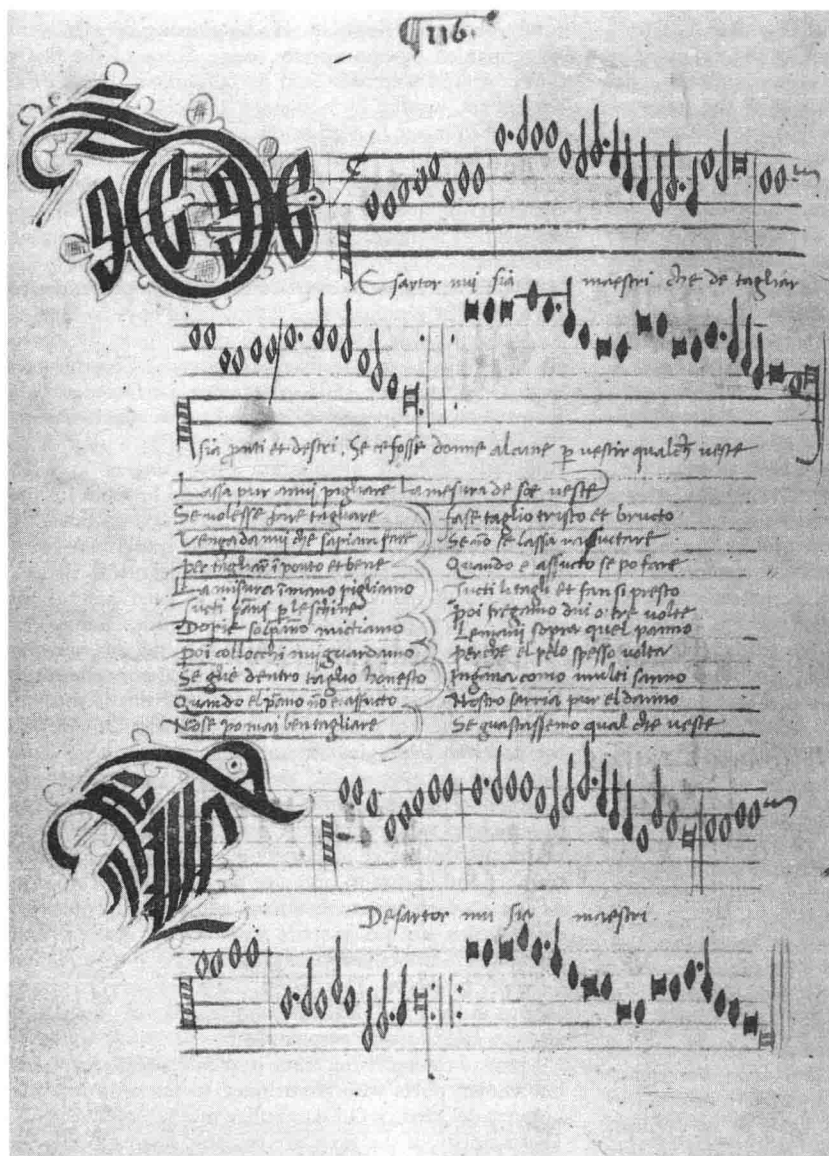 116.
sartor mi sia maestri che de tagliar
sia et destri. Se ce fosse donne alcune vestir veste
Lassa pur pigliare la mesura de veste
Se volesse fare tagliare
Venga da mi che sapimo fare
ponto et bene
La misura mano pigliamo
le schine
Dopie mictiamo
poi collocchi mi guardamo
Se glie dentro taglio honesto
Quando el assucto
po mai ben tagliare
fase taglio tristo et bructo
Se se lassa
Quando e assucto se po fare
tucti li tagli et fan si presto
poi fregamo dui o tre volte
Le mani sopra quel panno
perche el pelo spesso volta
como mulei sanno
Nostro sarria pur el danno
Se guastassemo qual che veste
De sartor mi sia maestri.